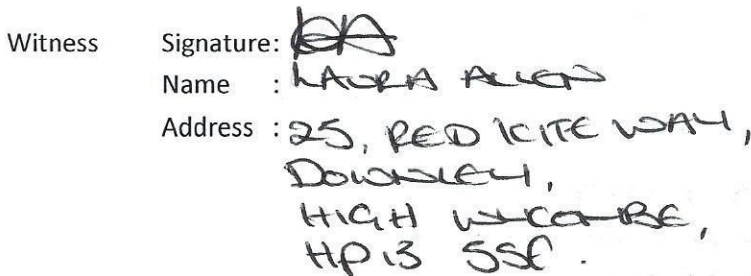 Witness Signature:
Name : LAURA ALLEN
Address : 25, RED KITE WAY,
DOWNLEY,
HIGH WYCOMBE,
HP13 5SE.